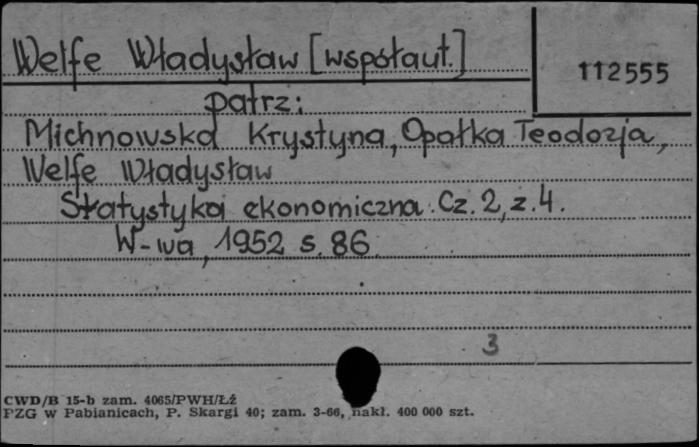 Welfe Władysław [współaut.]
112555
patrz:
Michnowska Krystyna, Opałka Teodozja,
Welfe Władysław
Statystyka ekonomiczna. Cz. 2, z. 4.
W-wa, 1952 s. 86
3
CWD/B 15-b zam. 4065/PWH/Łź
PZG w Pabianicach, P. Skargi 40; zam. 3-66, nakł. 400 000 szt.